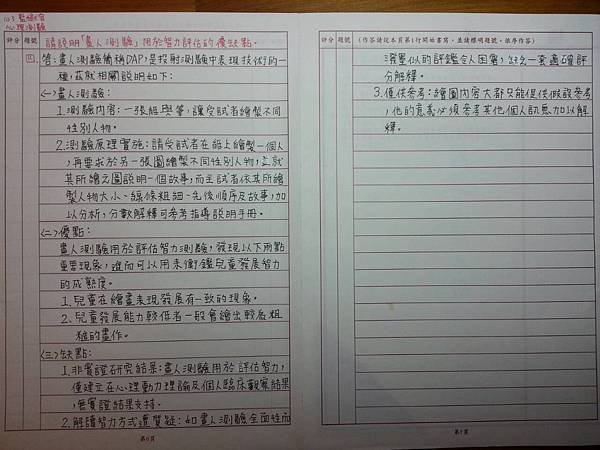 103 監獄官
心理測驗
評分 題號
請說明「畫人測驗」用於智力評估的優缺點。
四、 答:畫人測驗簡稱DAP,是投射測驗中表現技術的一
種,茲就相關說明如下:
(一)畫人測驗:
1.測驗內容:一張紙與筆,讓受試者繪製不同
性別人物。
2.測驗原理實施:請受試者在紙上繪製一個人
,再要求於另一張圖繪製不同性別人物,並就
其所繪之圖說明一個故事,而主試者依其所繪
製人物大小、線條粗細、先後順序及故事,加
以分析,分數解釋可參考指導說明手冊。
(二)優點:
畫人測驗用於評估智力測驗,發現以下兩點
重要現象,進而可以用來衡鑑兒童發展智力
的成熟度。
1.兒童在繪畫表現發展有一致的現象。
2.兒童發展能力較低者一般會繪出較為粗
糙的畫作。
(三)缺點:
1.非實證研究結果:畫人測驗用於評估智力,
僅建立在心理動力理論及個人臨床觀察結果
,無實證結果支持。
2.解讀智力方式遭質疑:如畫人測驗全面性而
第6頁
評分 題號 (作答請從本頁第1行開始書寫,並請標明題號,依序作答)
似的評鑑令人困窘,缺乏一套適確評
分解釋。
3.僅供參考:繪圖內容大都只能提供假設參考
,他的意義必須參考其他個人訊息加以解
釋。
第7頁